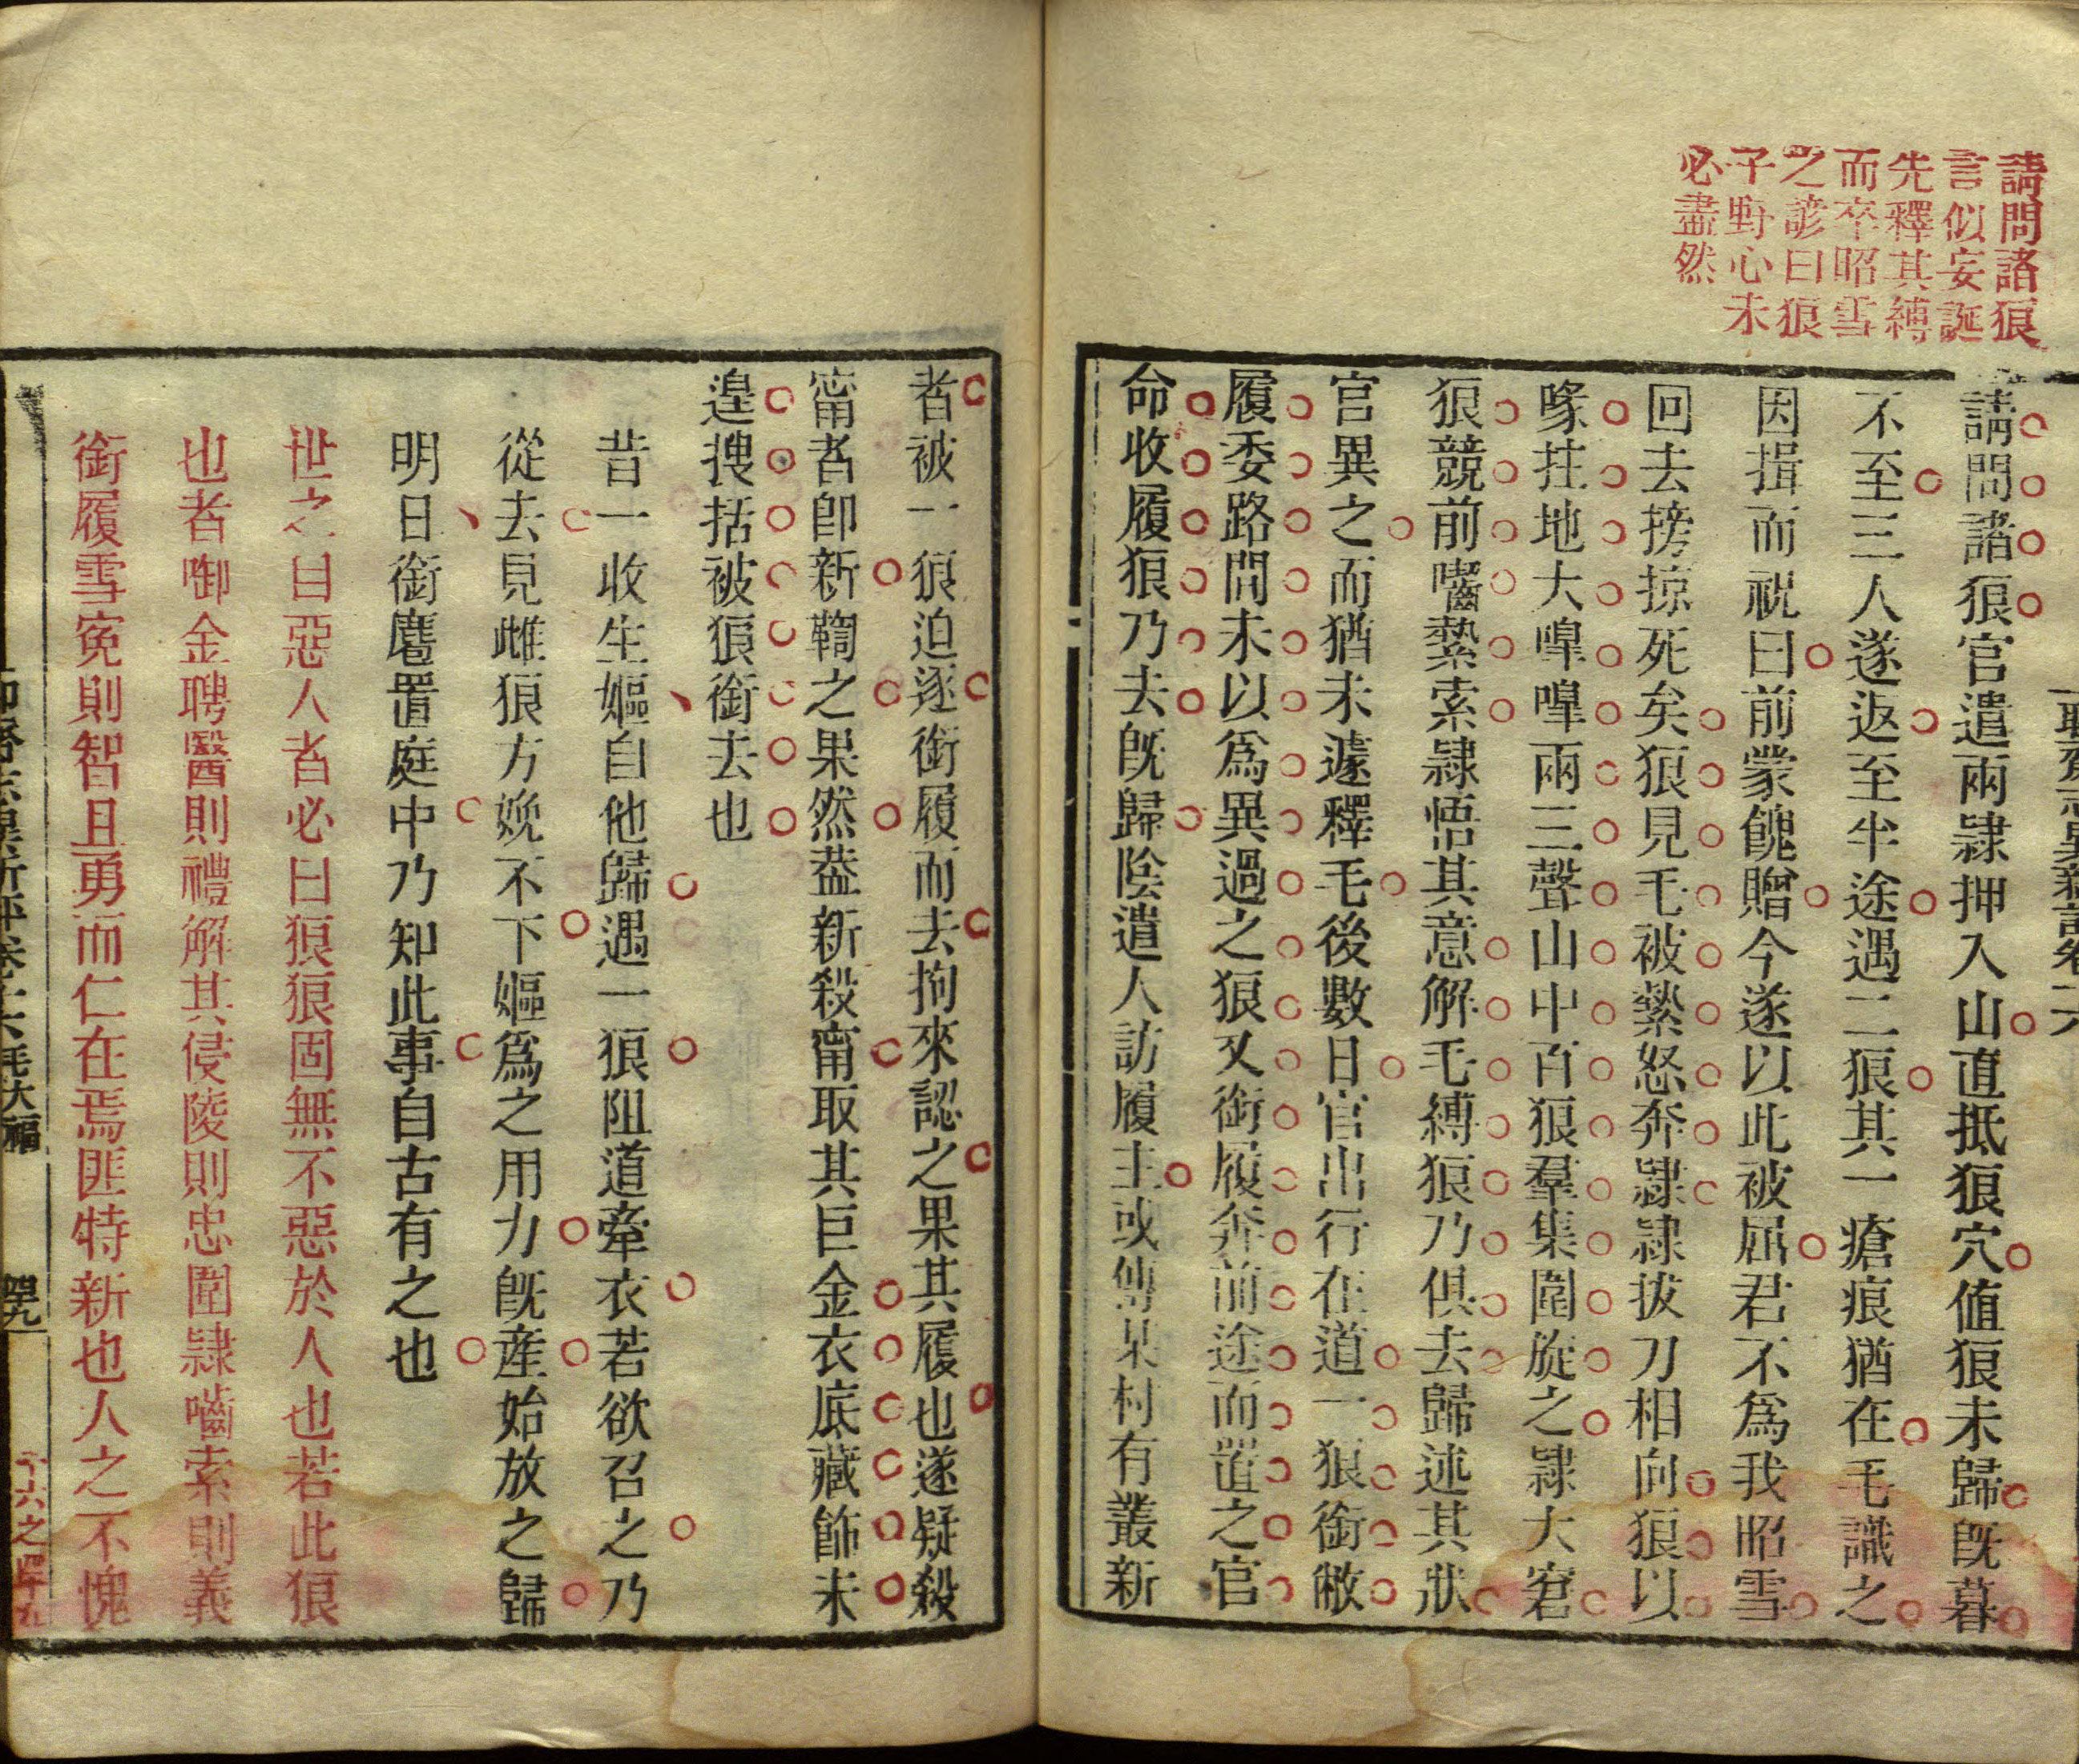 請問諸狼
言似妄誕
先釋其縛
而卒昭雪
之諺曰狼
子野心未
必盡然
請問諸狼官遣兩隷押入山直抵狼穴値狼未歸旣暮
不至三人遂返至半途遇二狼其一瘡痕猶在毛識之
因揖而祝曰前蒙餽贈今遂以此被屈君不爲我昭雪
回去搒掠死矣狼見毛被縶怒奔隷隷拔刀相向狼以
喙拄地大嘷嘷兩三聲山中百狼羣集圍旋之隷大窘
狼競前嚙縶索隷悟其意解毛縛狼乃俱去歸述其狀
官異之而猶未遽釋毛後數日官出行在道一狼銜敝
履委路間未以爲異過之狼又銜履奔前途而置之官
命收履狼乃去旣歸陰遣人訪履主或傳某村有叢新
者被一狼迫逐銜履而去拘來認之果其履也遂疑殺
甯者卽新鞫之果然葢新殺甯取其巨金衣底藏飾未
遑搜括被狼銜去也
昔一收生嫗自他歸遇一狼阻道牽衣若欲召之乃
從去見雌狼方娩不下嫗爲之用力旣産始放之歸
明日銜麅置庭中乃知此事自古有之也
世之目惡人者必曰狼狼固無不惡於人也若此狼
也者啣金聘醫則禮解其侵陵則忠圍隷嚙索則義
銜履雪寃則智且勇而仁在焉匪特新也人之不愧
毛大福
四九
十六之四十九